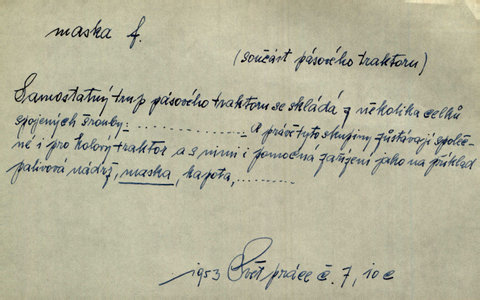 maska f.
(součást pásového traktoru)
Samostatný trup pásového traktoru se skládá z několika celků
spojených šrouby. .............. A právě tyto skupiny zůstávají společ-
né i pro kolový traktor a s nimi i pomocná zařízení jako na příklad
palivová nádrž, maska, kapota, ..........
1953 Svět práce č. 7, 10c